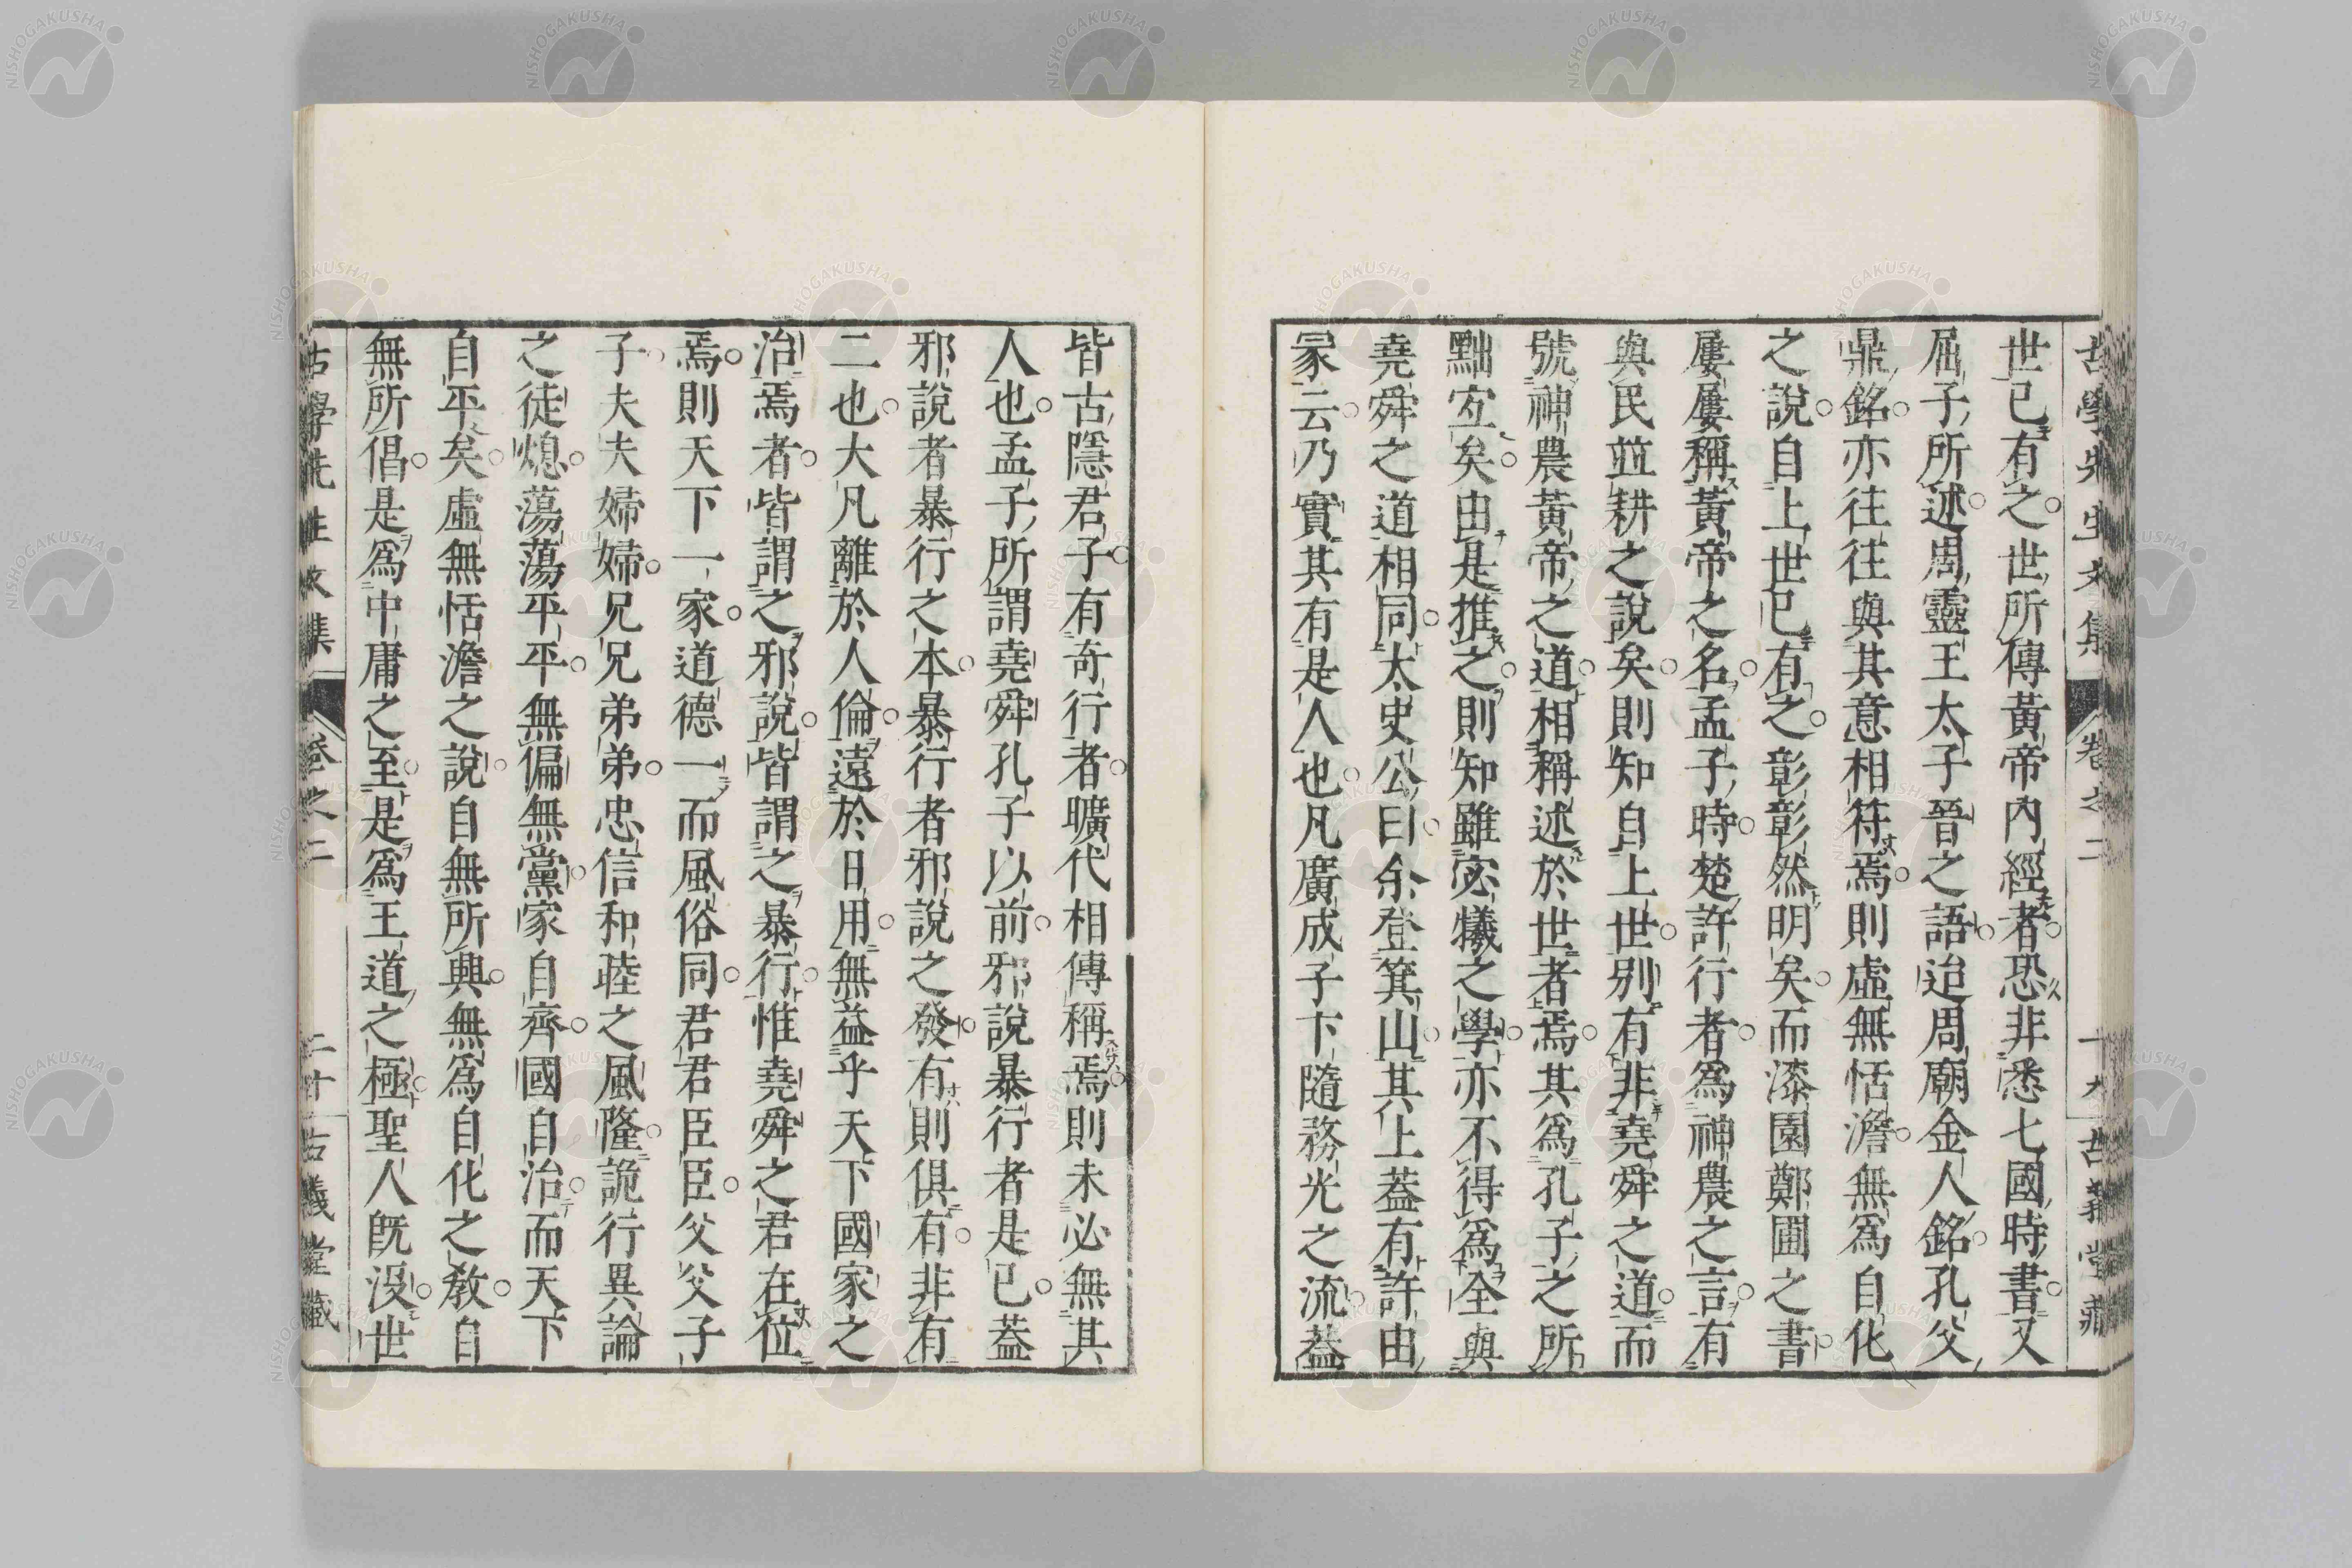 古學先生文集 卷之二 十九 古義堂藏
世已有之世所傳黃帝內經者恐非悉七國時書又
屈子所述周靈王太子晉之語迨周廟金人銘孔父
鼎銘亦往往與其意相符焉則虛無恬澹無爲自化
之說自上世已有之彰彰然明矣而漆園鄭圃之書
屢屢稱黃帝之名孟子時楚許行者爲神農之言有
與民並耕之說矣則知自上世別有非堯舜之道而
號神農黃帝之道相稱述於世者焉其爲孔子之所
黜宜矣由是推之則知雖宓犧之學亦不得爲全與
堯舜之道相同太史公曰余登箕山其上蓋有許由
冢云乃實其有是人也凡廣成子卞隨務光之流蓋
皆古隱君子有奇行者曠代相傳稱焉則未必無其
人也孟子所謂堯舜孔子以前邪說暴行者是已蓋
邪說者暴行之本暴行者邪說之發有則俱有非有
二也大凡離於人倫遠於日用無益乎天下國家之
治焉者皆謂之邪說皆謂之暴行惟堯舜之君在位
焉則天下一家道德一而風俗同君君臣臣父父子
子夫夫婦婦兄兄弟弟忠信和睦之風隆詭行異論
之徒熄蕩蕩平平無偏無黨家自齊國自治而天下
自平矣虛無恬澹之說自無所興無爲自化之敎自
無所倡是爲中庸之至是爲王道之極聖人旣沒世
古學先生文集 卷之二 二十 古義堂藏
NISHOGAKUSHA